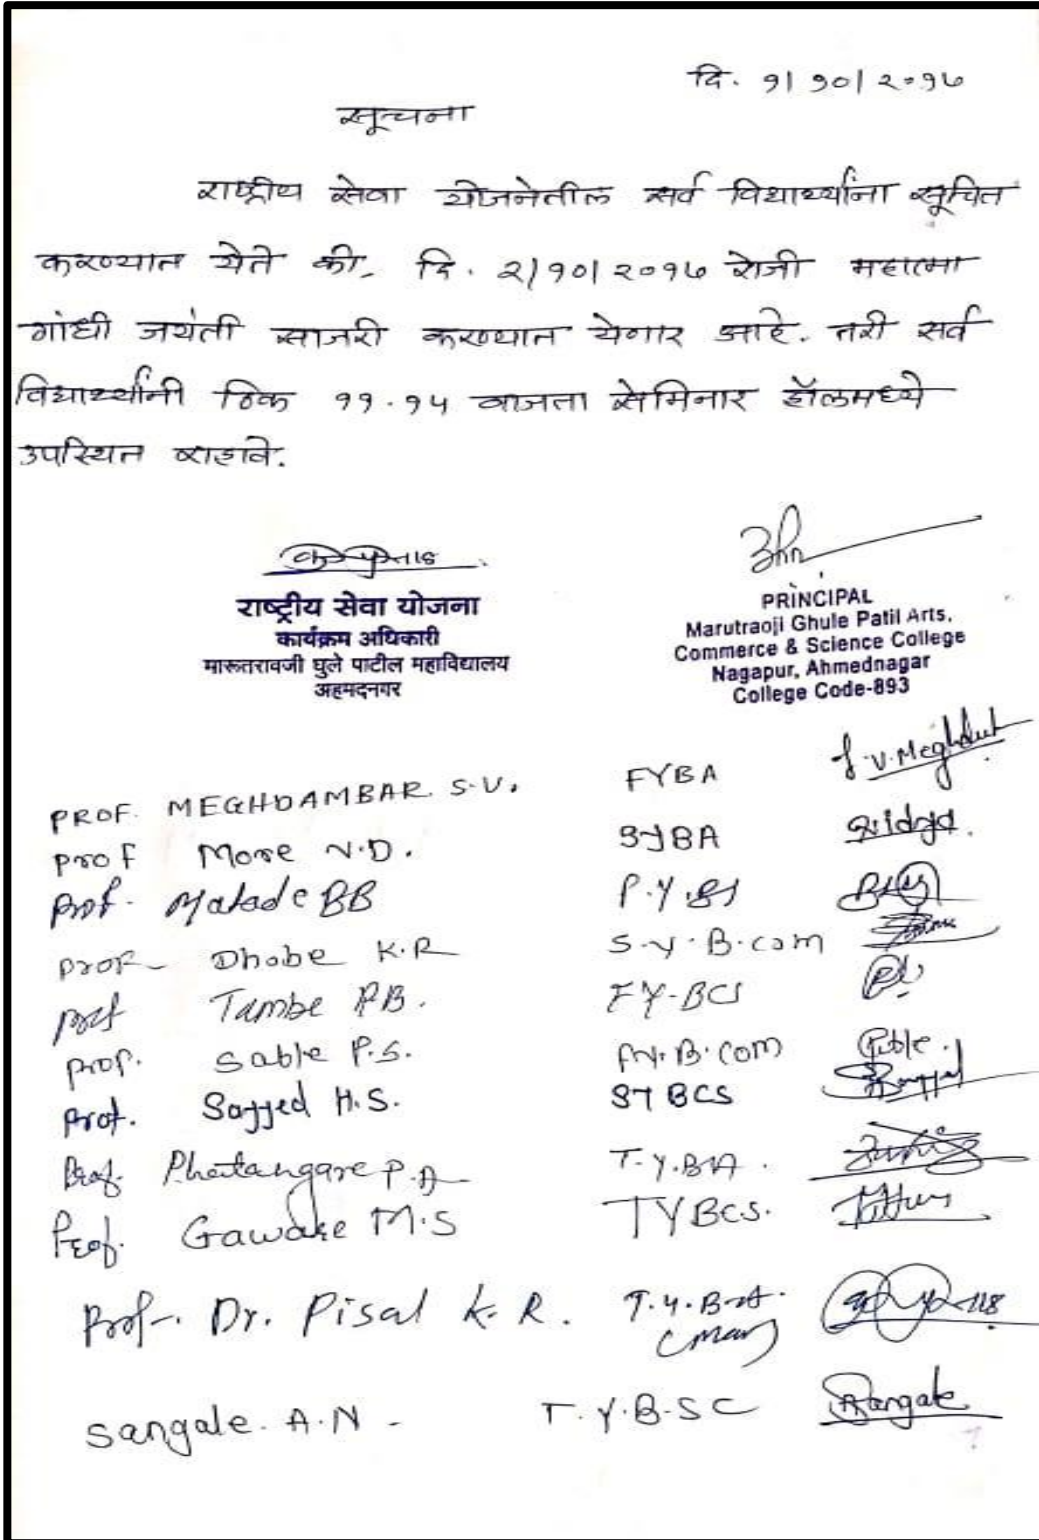 दि. १/१०/२०१७
सूचना
राष्ट्रीय सेवा योजनेतील सर्व विद्यार्थ्यांना सूचित
करण्यात येते की, दि. २/१०/२०१७ रोजी महात्मा
गांधी जयंती साजरी करण्यात येणार आहे. तरी सर्व
विद्यार्थ्यांनी ठिक ११.१५ वाजता सेमिनार हॉलमध्ये
उपस्थित राहावे.
राष्ट्रीय सेवा योजना
कार्यक्रम अधिकारी
मारूतरावजी घुले पाटील महाविद्यालय
अहमदनगर
PRINCIPAL
Marutraoji Ghule Patil Arts,
Commerce & Science College
Nagapur, Ahmednagar
College Code-893
PROF. MEGHDAMBAR S.V. FYBA
Prof More N.D. SYBA
Prof. Matade BB
Prof Dhobe K.R S.Y.B.com
Prof Tambe P.B. FY-BCS
Prof. Sable P.S. F.Y.B.com
Prof. Sayyed H.S. SY BCS
Prof. Phatangare P.A T.Y.BA.
Prof. Gawade M.S TYBCS.
Prof. Dr. Pisal K.R. T.Y.B.A.
(Mar)
Sangale. A.N - T.Y.B.SC Sangale